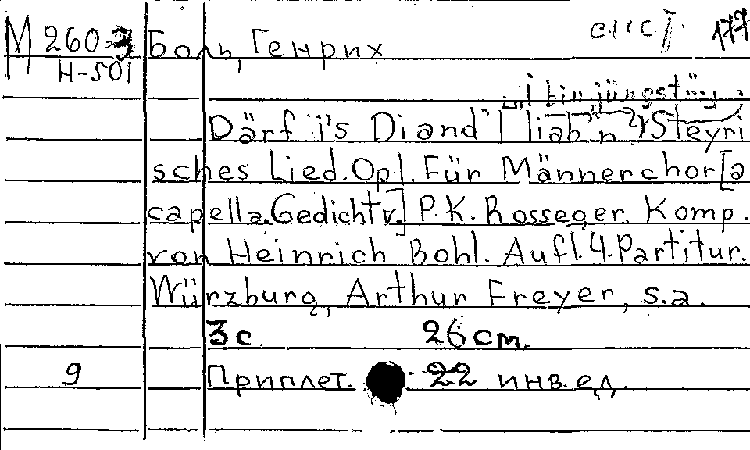 М 260-3 Боль, Генрих 177
Н-501
"I bin jüngst
Därf i's Diandl liab'n? Steyri
sches Lied. Op1. Für Männerchor [a
capella. Gedicht v.] P.K. Rosseger. Komp.
von Heinrich Bohl. Aufl. 4. Partitur.
Würzburg, Arthur Freyer, s.a.
3 с 26 cm.
9 Приплет. 22 инв. ед.